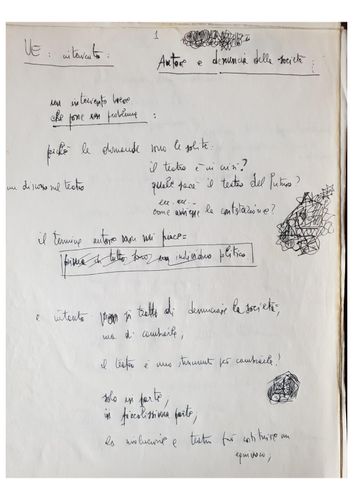 1
UE: intervento:
Autore e denuncia della società:
un intervento breve
che pone un problema:
poiché le domande sono le solite:
il teatro è in crisi?
un discorso sul teatro
quale sarà il teatro del futuro?
ecc... ecc...
come avviene la contestazione?
il termine autore non mi piace=
prima di tutto sono un individuo politico
e intanto non si tratta di denunciare la società
ma di cambiarla,
il teatro è uno strumento per cambiarla?
solo in parte,
in piccolissima parte,
la rivoluzione e teatro può costituire un
equivoco,